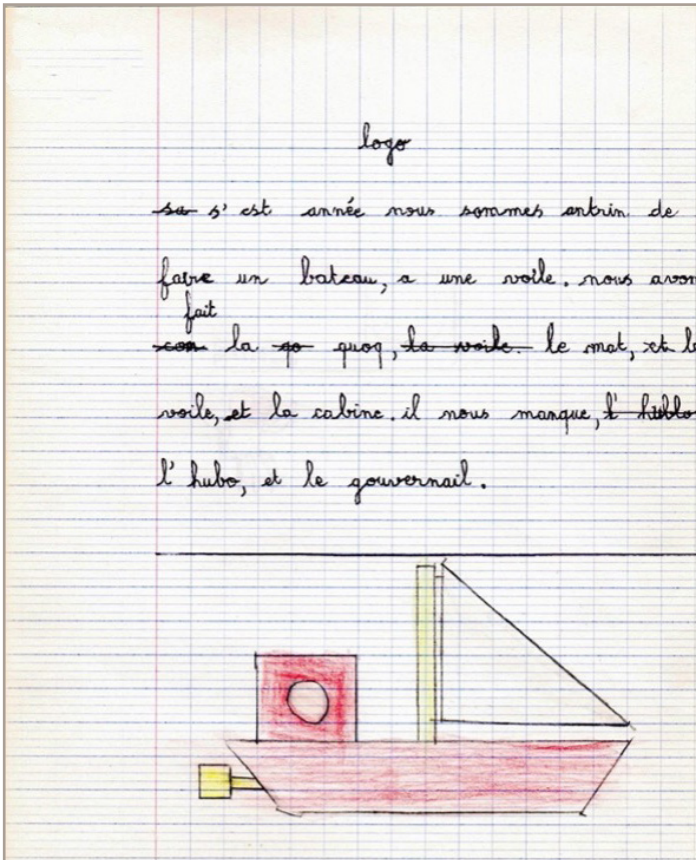 logo
s'est année nous sommes antrin de
faire un bateau, a une voile. nous avon
fait
la quoq, la voile. le mat, et l
voile, et la cabine. il nous manque, l'hublo
l'hubo, et le gouvernail.